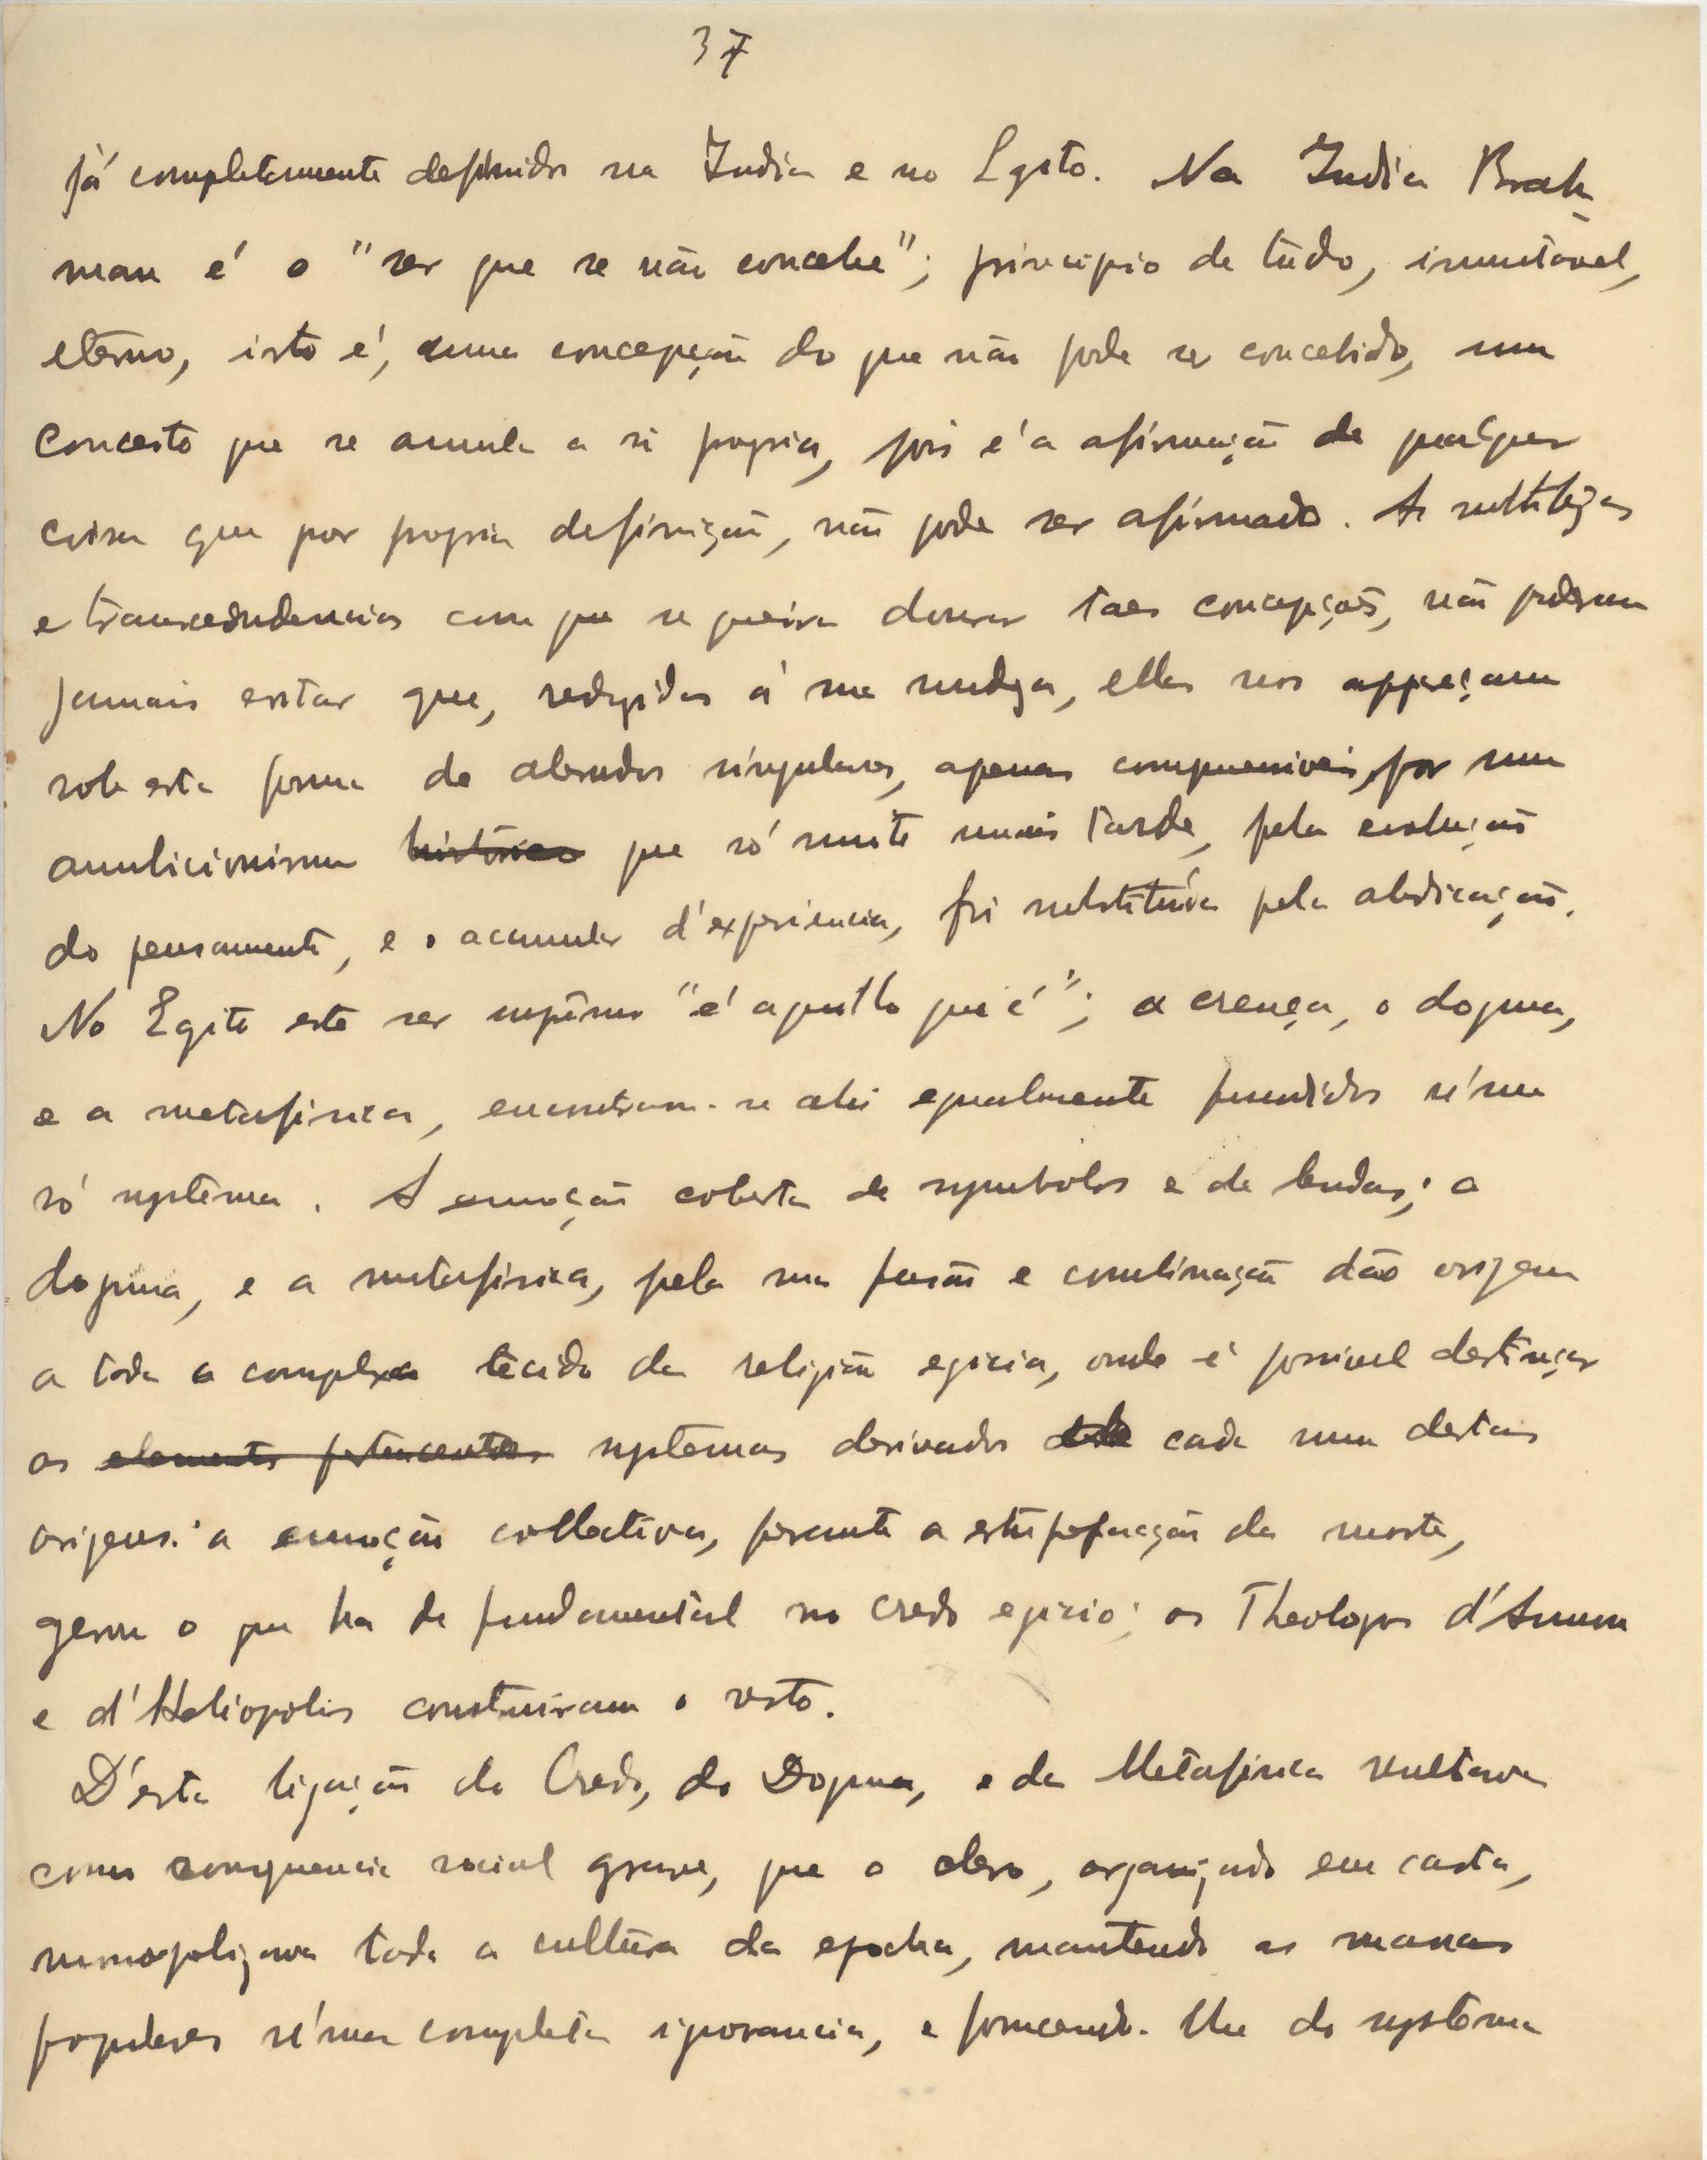 37
já completamente definidos na India e no Egito. Na India Brah-
man é o "ser que se não concebe"; principio de tudo, immutavel,
eterno, isto é, uma concepção do que não pode ser concebido, um
conceito que se annula a si proprio, pois é a afirmação de qualquer
coisa que por propria definição, não pode ser afirmado. As subtilezas
e transcedndencias com que se queira dourar taes concepções, não poderam
jamais evitar que, redusidas á sua nudeza, ellas nos appareçam
sob esta forma de absurdos singulares, apenas comprensiveis, por um
ambicionismo historico que só muito mais tarde, pela evolução
do pensamento, e o acumular d'experiencia, foi substituida pela abdicação.
No Egito este ser supremo "é aquillo que é"; a crença, o dogma,
e a metafisica, encontram-se ahi egualmente fundidos n'um
só systema. A emoção coberta de symbolos e de lendas; o
dogma, e a metafisica, pela sua fusão e combinação dão origem
a todo o complexo tecido da religião egicia, onde é possivel destinçar
os elementos pertencentes systemas derivados de cada uma destas
origens: a emoção collectiva, perante a estupefacção da morte,
gerou o que ha de fundamental no credo egicio; os Theologos d'Amon
e d'Heliopolis construiram o resto.
D'esta ligação do Credo, do Dogma, e da Metafisica resultava
como consequencia social grave, que o clero, organizado em casta,
monopolizava toda a cultura da epocha, mantendo as massas
populares n'uma completa ignorancia, e fornecendo-lhe do systema